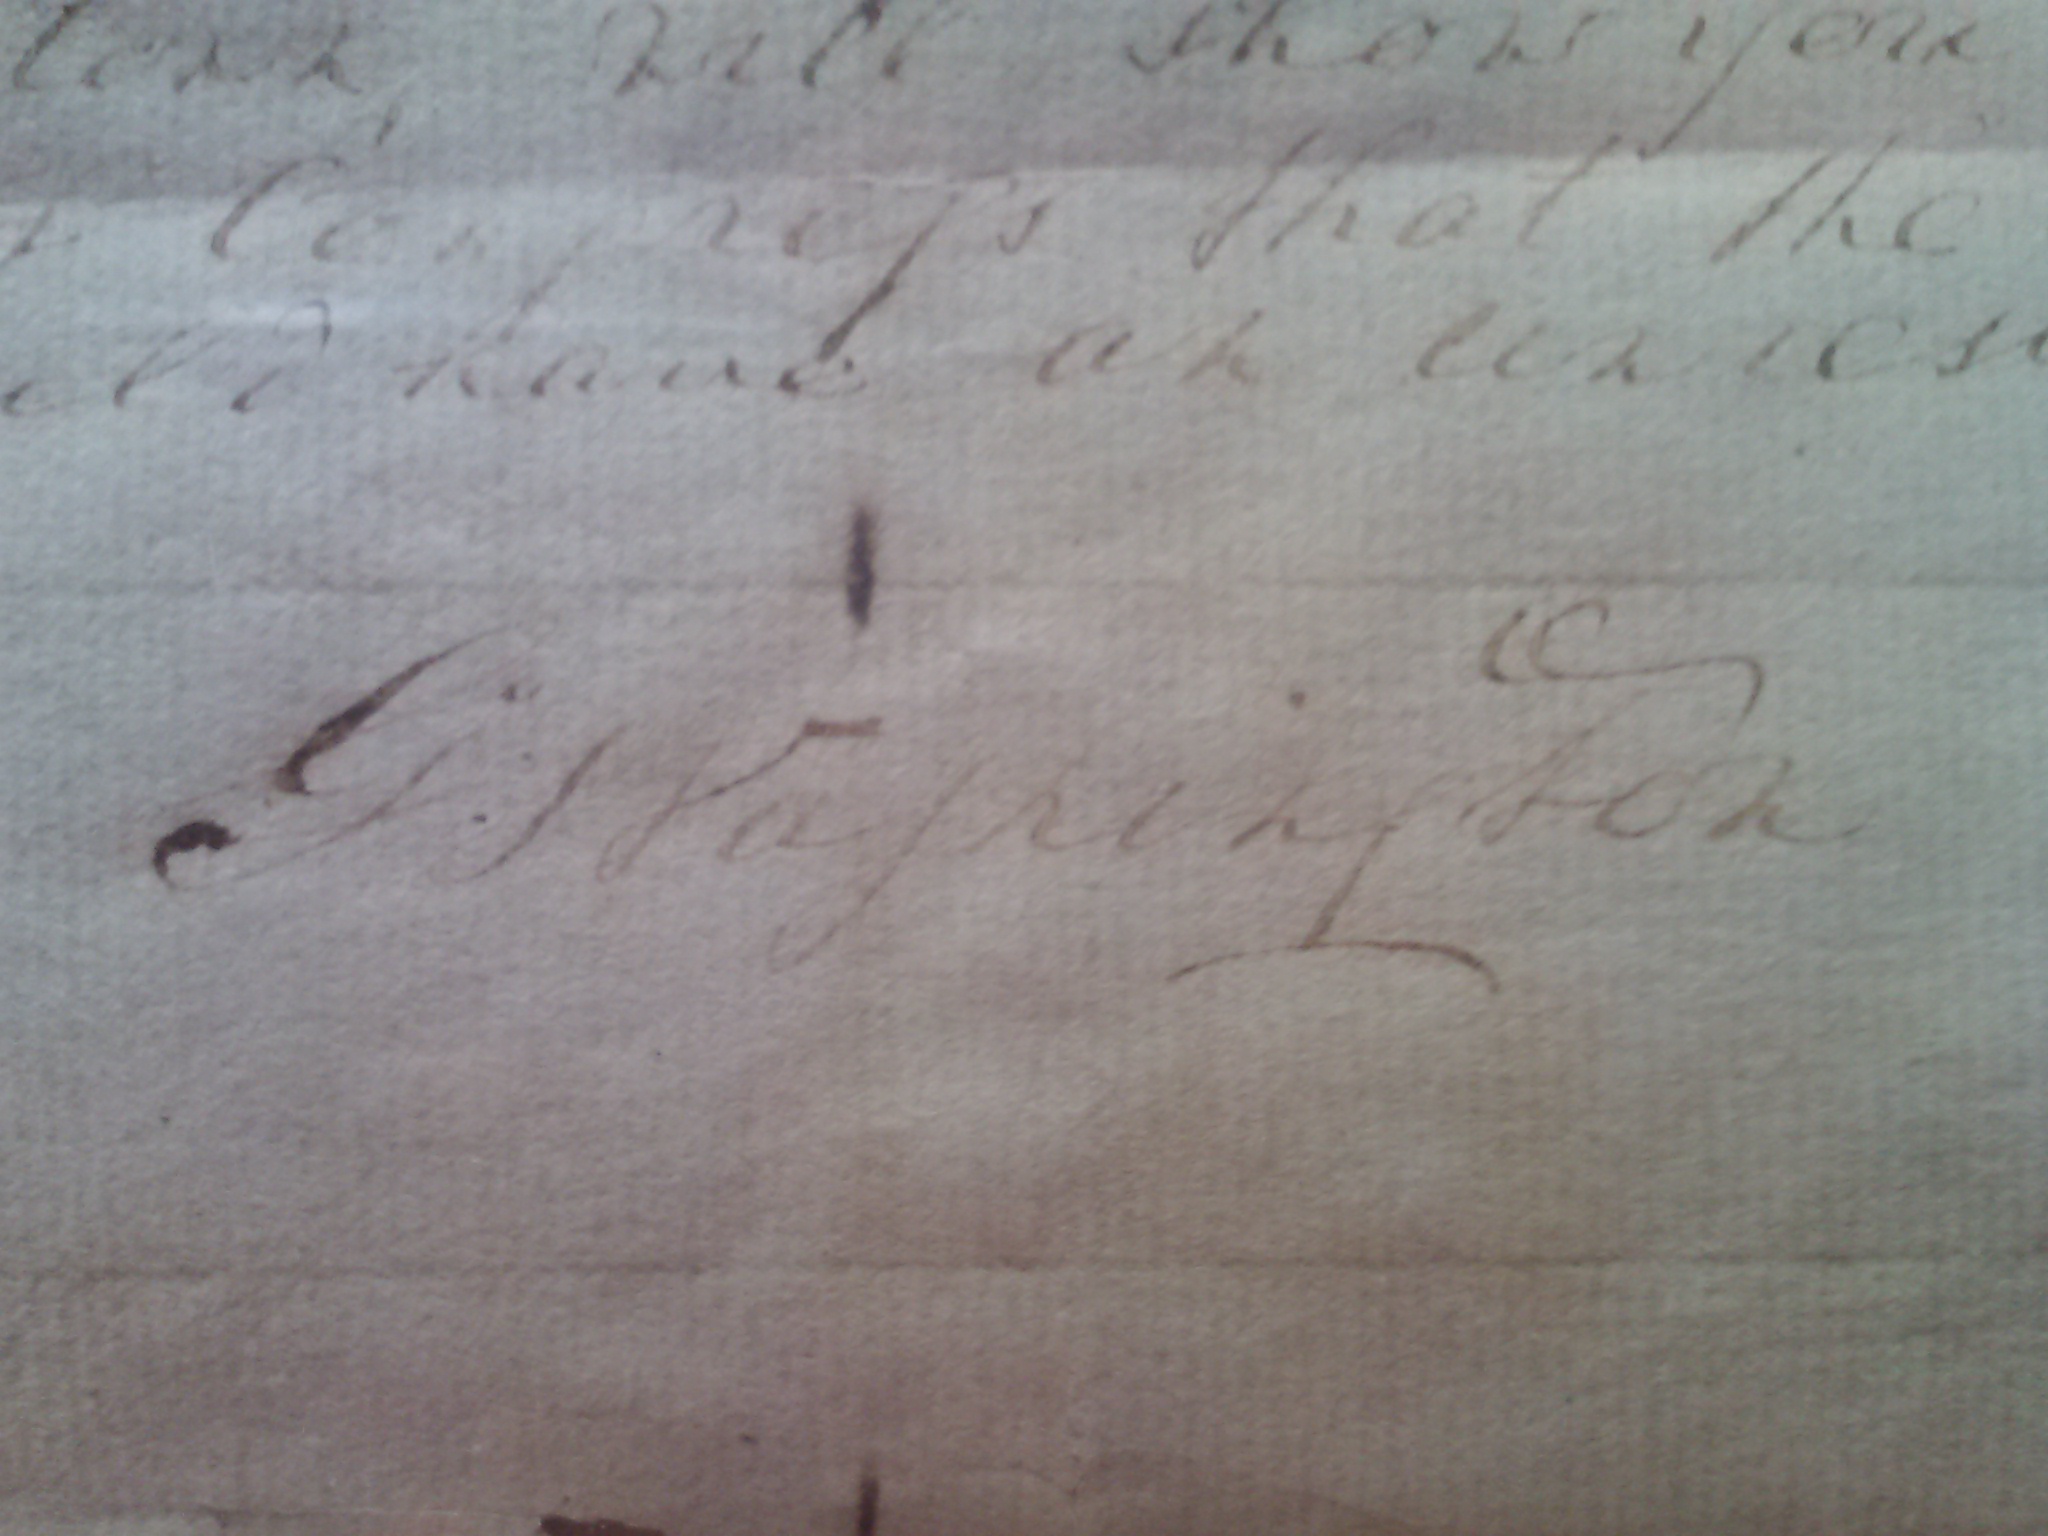 will show you
Congreſs that the
have an
G: Waſhington